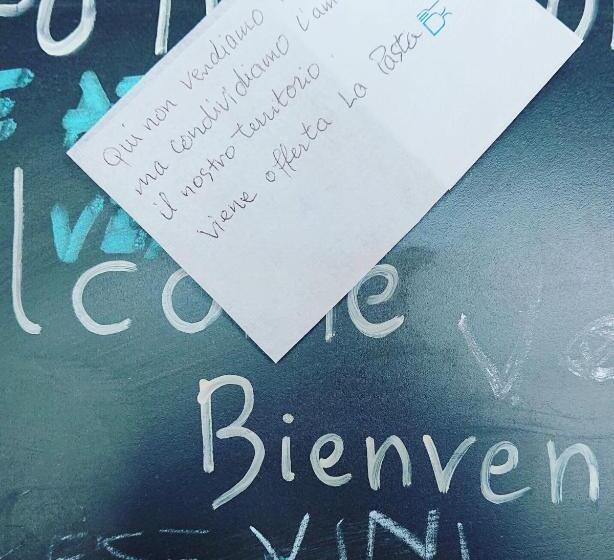 Qui non vendiamo
ma condividiamo l'am
il nostro territorio.
viene offerta La Pasta
lcome
Bienven
VINI